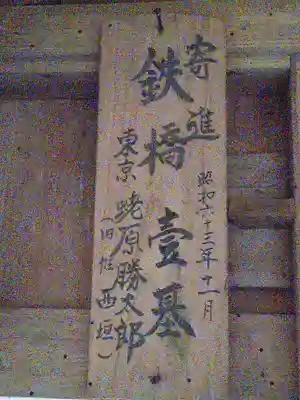 寄進
昭和六十三年十一月
鉄橋壹基
東京 蛯原勝太郎
(旧姓 西垣)